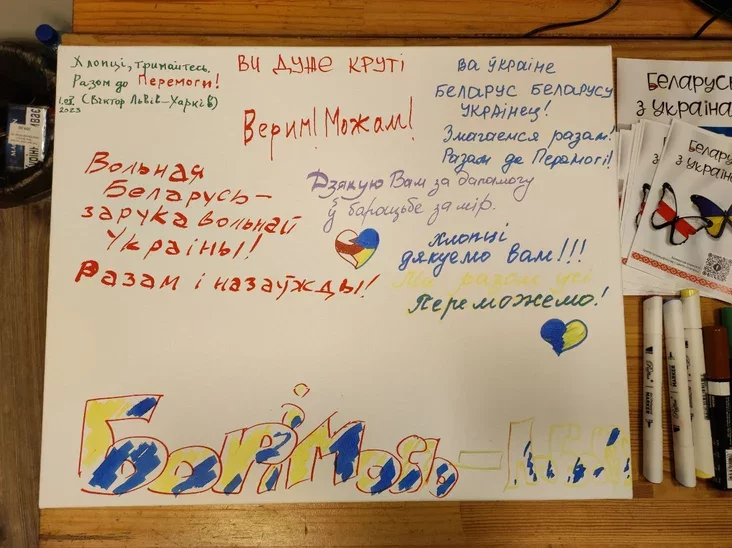 Хлопці, тримайтесь.
Разом до Перемоги!
(Віктор Львів-Харків)
2023
ВИ ДУЖЕ КРУТІ
Верим! Можам!
ВА ЎКРАІНЕ
БЕЛАРУС БЕЛАРУСУ
УКРАІНЕЦ!
Змагаемся разам!
Разам да Перамогі!
Вольная
Беларусь –
зарука вольнай
Украіны!
Разам і назаўжды!
Дзякую Вам за дапамогу
ў барацьбе за мір.
Хлопці
дякуємо вам!!!
Ми разом усі
Переможемо!
Борімось –
Беларусь
з Украіна
Беларус
з Украіна
MARKER